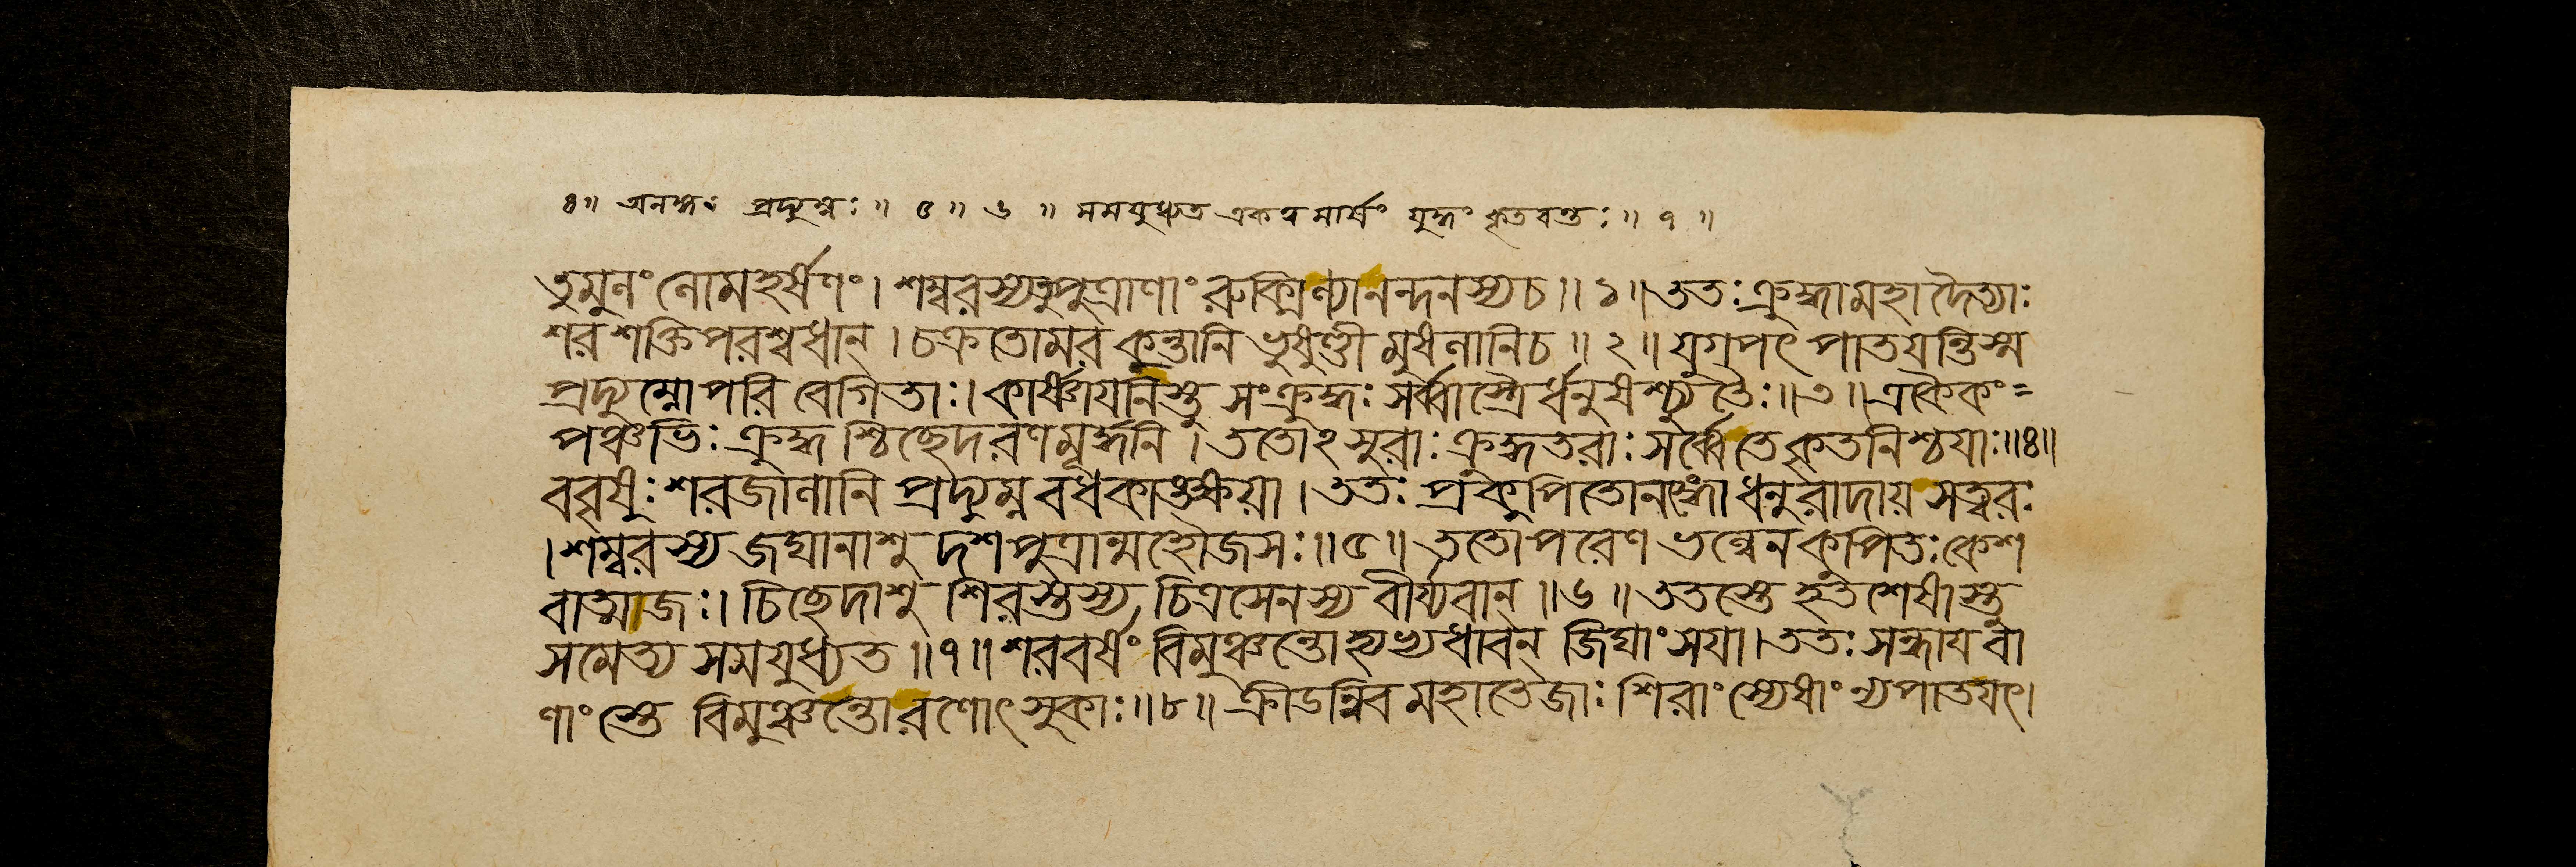 ৪॥ অনঙ্গঃ প্রদ্যুম্নঃ॥ ৫॥ ৬॥ সমযুধ্যত একবমার্ষং যুদ্ধং কৃতবন্তঃ॥ ৭॥
তুমুনং লোমহর্ষণং। শম্বরস্যতুপুত্রাণাং রুক্মিণ্যানন্দনস্যচ॥ ১॥ ততঃক্রুদ্ধামহাদৈত্যাঃ
শরশক্তিপরশ্বধান্। চক্রতোমরকুন্তানি ভুষুণ্ডীমুষলানিচ॥ ২॥ যুগপৎ পাতযন্তিস্ম
প্রদ্যুম্নোপরি বেগিতাঃ। কার্ষ্ণাযনিস্তু সংক্রুদ্ধঃ সর্ব্বাস্ত্রৈর্ধনুষশ্চ্যুতৈঃ॥৩॥ একৈকং=
পঞ্চভিঃ ক্রুদ্ধশ্চিছেদরণমূর্দ্ধনি। ততোঽসুরাঃ ক্রুদ্ধতরাঃ সর্ব্বেতেকৃতনিশ্চযাঃ॥৪॥
ববৃষুঃ শরজালানি প্রদ্যুম্নবধকাঙ্ক্ষয়া। ততঃ প্রকুপিতোনঙ্গো ধনুরাদায় সত্বরঃ
।শম্বরস্য জঘানাশু দশপুত্রান্মহৌজসঃ॥৫॥ ততোপরেণ ভল্লেন কুপিতঃকেশ
বাত্মাজঃ। চিছেদাশু শিরস্তস্য চিত্রসেনস্য বীর্য্যবান্॥৬॥ ততস্তে হতশেষাস্তু
সমেত্য সমযুধ্যত॥৭॥ শরবর্ষং বিমুঞ্চন্তোহ্যভ্যধাবন্ জিঘাংসযা। ততঃ সন্ধাযবা
ণাংস্তে বিমুঞ্চন্তোরণোৎসুকাঃ॥৮॥ ক্রীডন্নিবমহাতেজাঃ শিরাংস্যেষাং ন্যপাতযৎ।